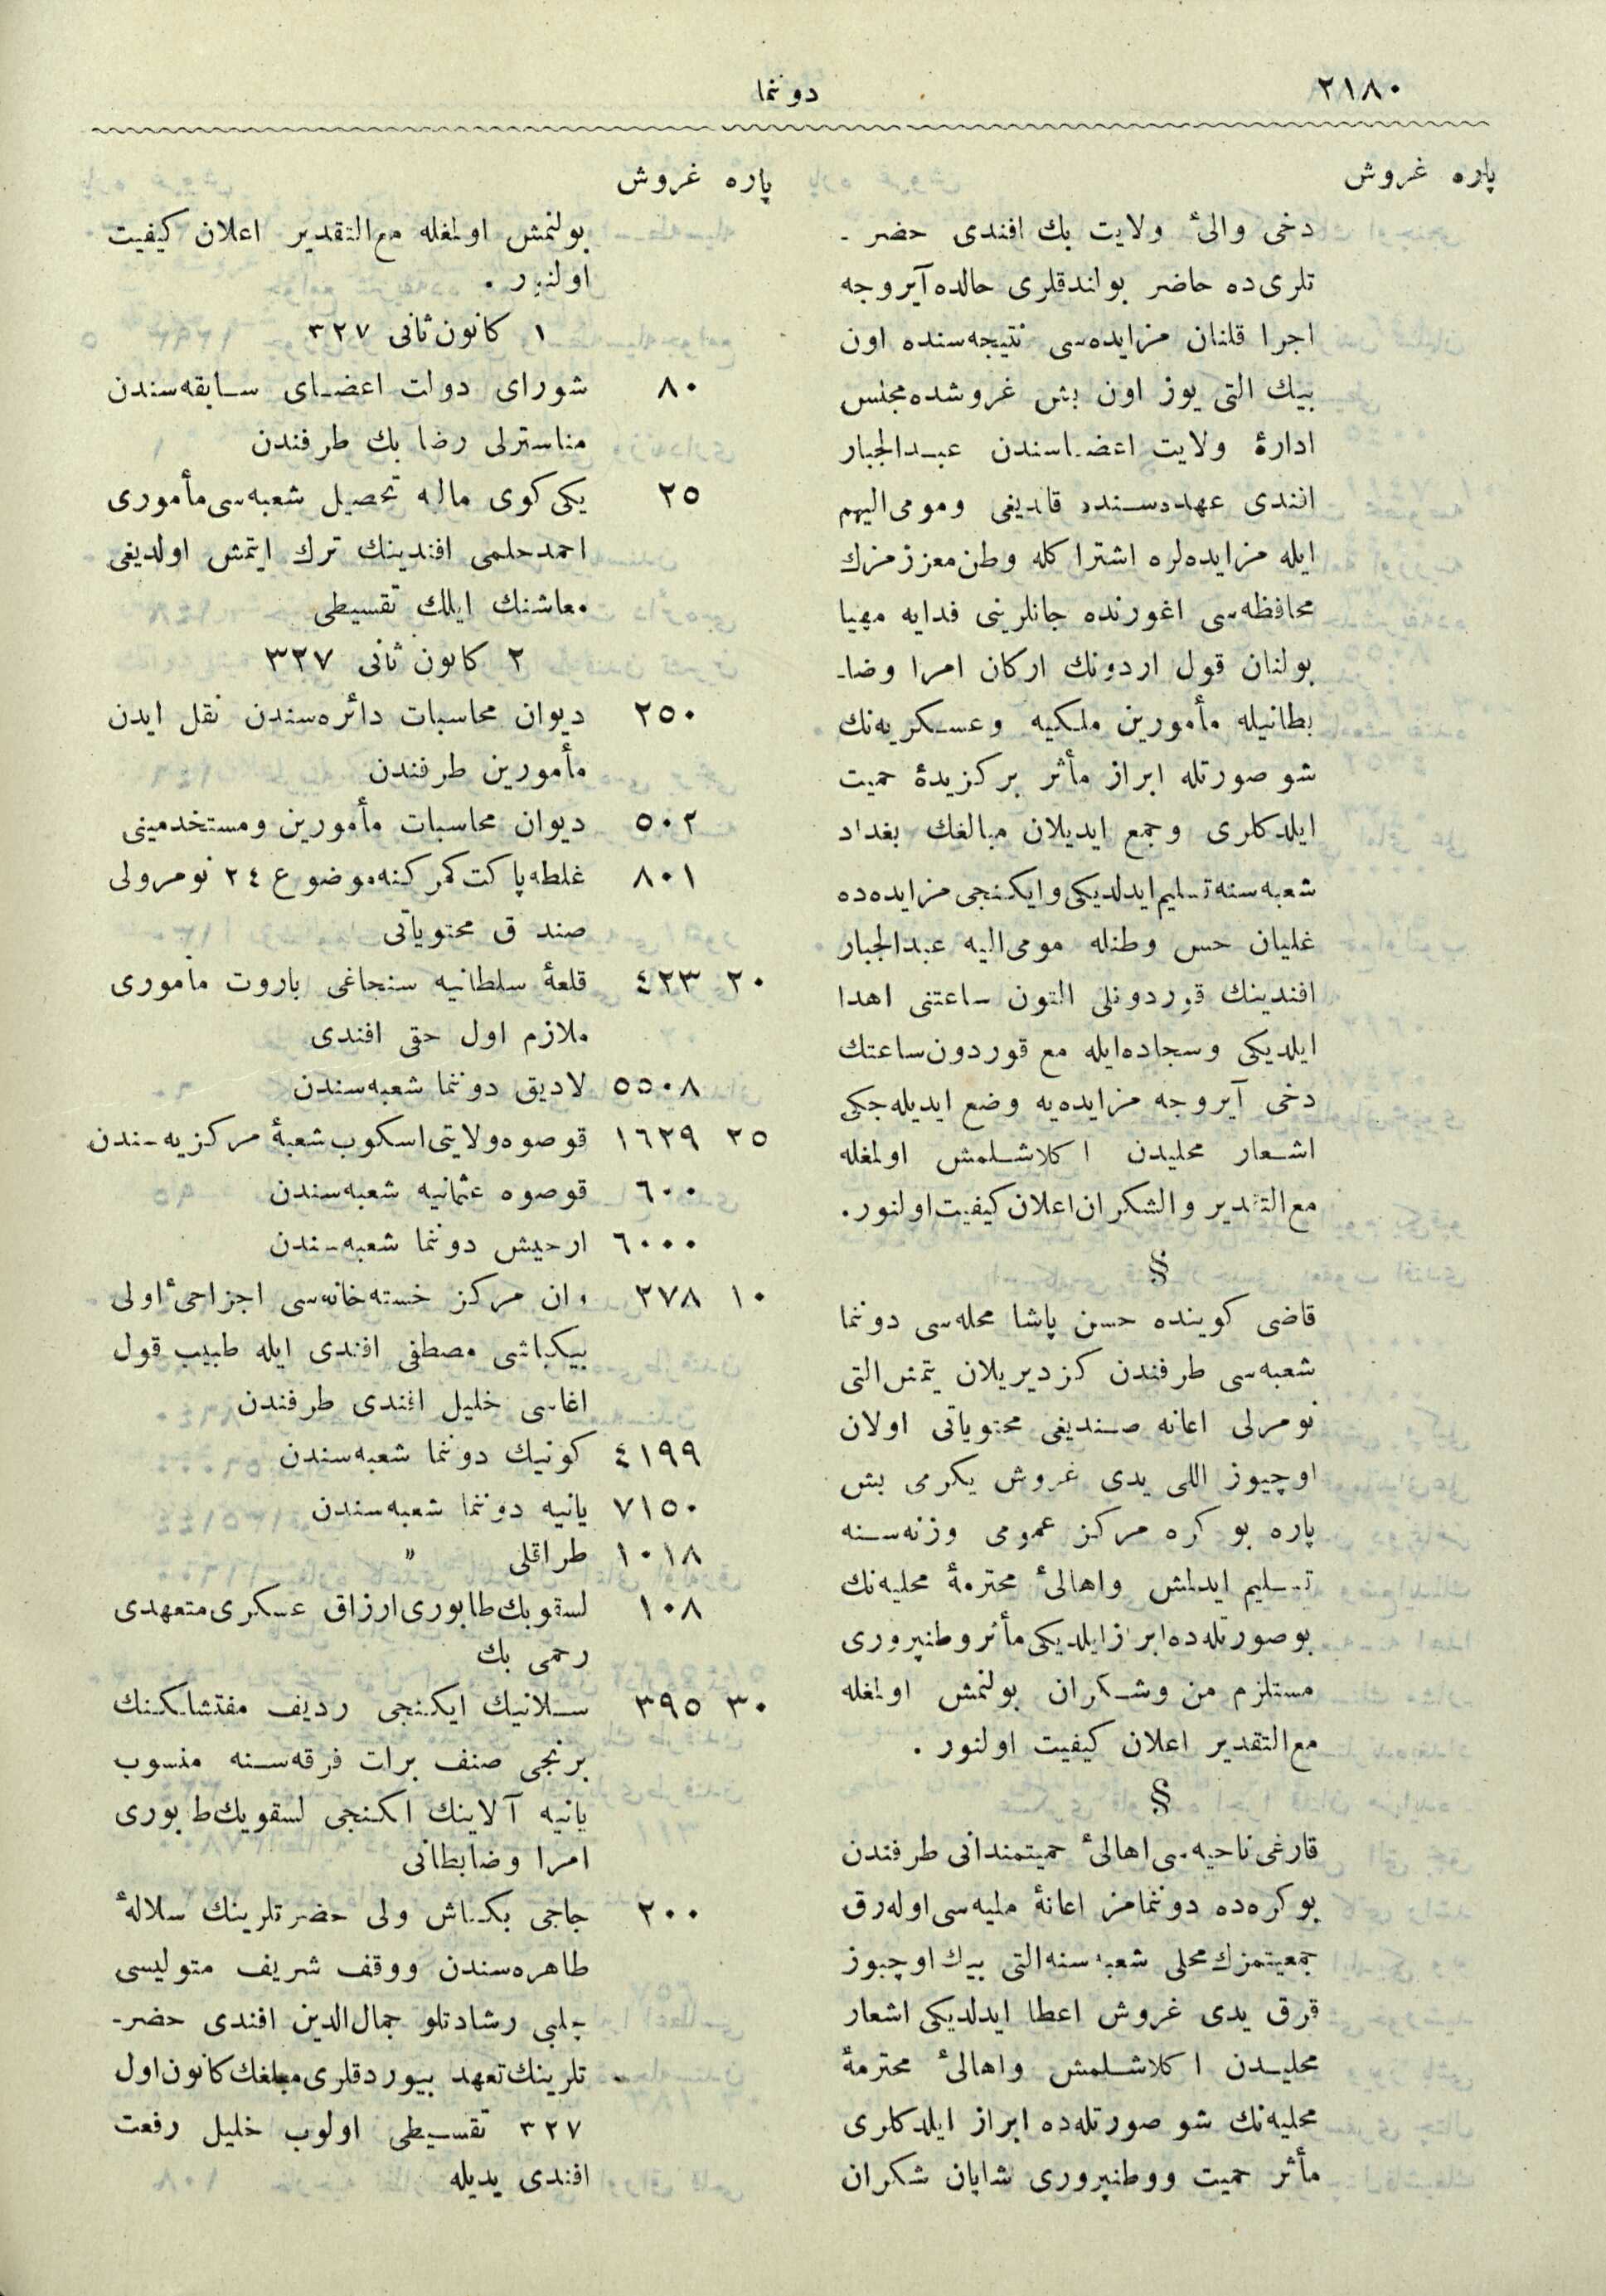 ٢١٨٠
دوننما
پاره غروش
دخی والیٔ ولایت بك افندی حضر-
تلری‌ده حاضر بولندقلری حالده آیروجه
اجرا قلنان مزایده‌سی نتیجه‌سنده اون
بیك التی یوز اون بش غروشده مجلس
ادارهٔ ولایت اعضاسندن عبدالجبار
افندی عهده‌سنده قالدیغی ومومی‌الیهم
ایله مزایده‌لره اشتراكله وطن معززمزك
محافظه‌سی اغورنده جانلرینی فدایه مهیا
بولنان قول اردونك اركان امرا وضا-
بطانیله مأمورین ملكیه وعسكریه‌نك
شو صورتله ابراز مأثر بركزیدهٔ حمیت
ایلدكلری وجمع ایدیلان مبالغك بغداد
شعبه‌سنه تسلیم ایدلدیكی وایكنجی مزایده‌ده
غلیان حس وطنله مومی‌الیه عبدالجبار
افندینك قوردونلی التون ساعتنی اهدا
ایلدیكی وسجاده‌ایله مع قوردون ساعتك
دخی آیروجه مزایده‌یه وضع ایدیله‌جكی
اشعار محلیدن اكلاشلمش اولمغله
مع‌التقدیر والشكران اعلان كیفیت اولنور.
§
قاضی كوینده حسن پاشا محله‌سی دوننما
شعبه‌سی طرفندن كزدیریلان یتمش التی
نومرلی اعانه صندیغی محتویاتی اولان
اوچیوز اللی یدی غروش یكرمی بش
پاره بو كره مركز عمومی وزنه‌سنه
تسلیم ایدلمش واهالیٔ محترمهٔ محلیه‌نك
بوصورتله‌ده ابراز ایلدیكی مأثر وطنپروری
مستلزم من وشكران بولنمش اولمغله
مع‌التقدیر اعلان كیفیت اولنور .
§
قارغی ناحیه‌سی اهالیٔ حمیتمندانی طرفندن
بوكره‌ده دوننمامز اعانهٔ ملیه‌سی اوله‌رق
جمعیتمزك محلی شعبه‌سنه التی بیك اوچیوز
قرق یدی غروش اعطا ایدلدیكی اشعار
محلیدن اكلاشلمش واهالیٔ محترمهٔ
محلیه‌نك شو صورتله‌ده ابراز ایلدكلری
مأثر حمیت ووطنپروری شایان شكران
پاره غروش
بولنمش اولمغله مع‌التقدیر اعلان كیفیت
اولنور .
١ كانون ثانی ٣٢٧
٨٠ شورای دولت اعضای سابقه‌سندن
مناسترلی رضا بك طرفندن
٢٥ یكی كوی مالیه تحصیل شعبه‌سی مأموری
احمد حلمی افندینك ترك ایتمش اولدیغی
معاشنك ایللك تقسیطی
٢ كانون ثانی ٣٢٧
٢٥٠ دیوان محاسبات دائره‌سندن نقل ایدن
مأمورین طرفندن
٥٠٢ دیوان محاسبات مأمورین ومستخدمینی
٨٠١ غلطه پاكت كمركنه موضوع ٢٤ نومرولی
صندق محتویاتی
٢٠ ٤٢٣ قلعهٔ سلطانیه سنجاغی باروت ماموری
ملازم اول حقی افندی
٥٥٠٨ لادیق دوننما شعبه‌سندن
٢٥ ١٦٢٩ قوصوه ولایتی اسكوب شعبهٔ مركزیه‌سندن
٦٠٠ قوصوه عثمانیه شعبه‌سندن
٦٠٠٠ ارجیش دوننما شعبه‌سندن
١٠ ٢٧٨ وان مركز خسته‌خانه‌سی اجزاجیٔ اولی
بیكباشی مصطفی افندی ایله طبیب قول
اغاسی خلیل افندی طرفندن
٤١٩٩ كونیك دوننما شعبه‌سندن
٧١٥٠ یانیه دوننما شعبه‌سندن
١٠١٨ طراقلی „
١٠٨ لسقوبك طابوری ارزاق عسكری متعهدی
رحمی بك
٣٠ ٣٩٥ سلانیك ایكنجی ردیف مفتشلكنك
برنجی صنف برات فرقه‌سنه منسوب
یانیه آلاینك اكنجی لسقویك طابوری
امرا وضابطانی
٢٠٠ حاجی بكتاش ولی حضرتلرینك سلالهٔ
طاهره‌سندن ووقف شریف متولیسی
چلبی رشادتلو جمال‌الدین افندی حضر-
تلرینك تعهد بیوردقلری مبلغك كانون اول
٣٢٧ تقسیطی اولوب خلیل رفعت
افندی یدیله